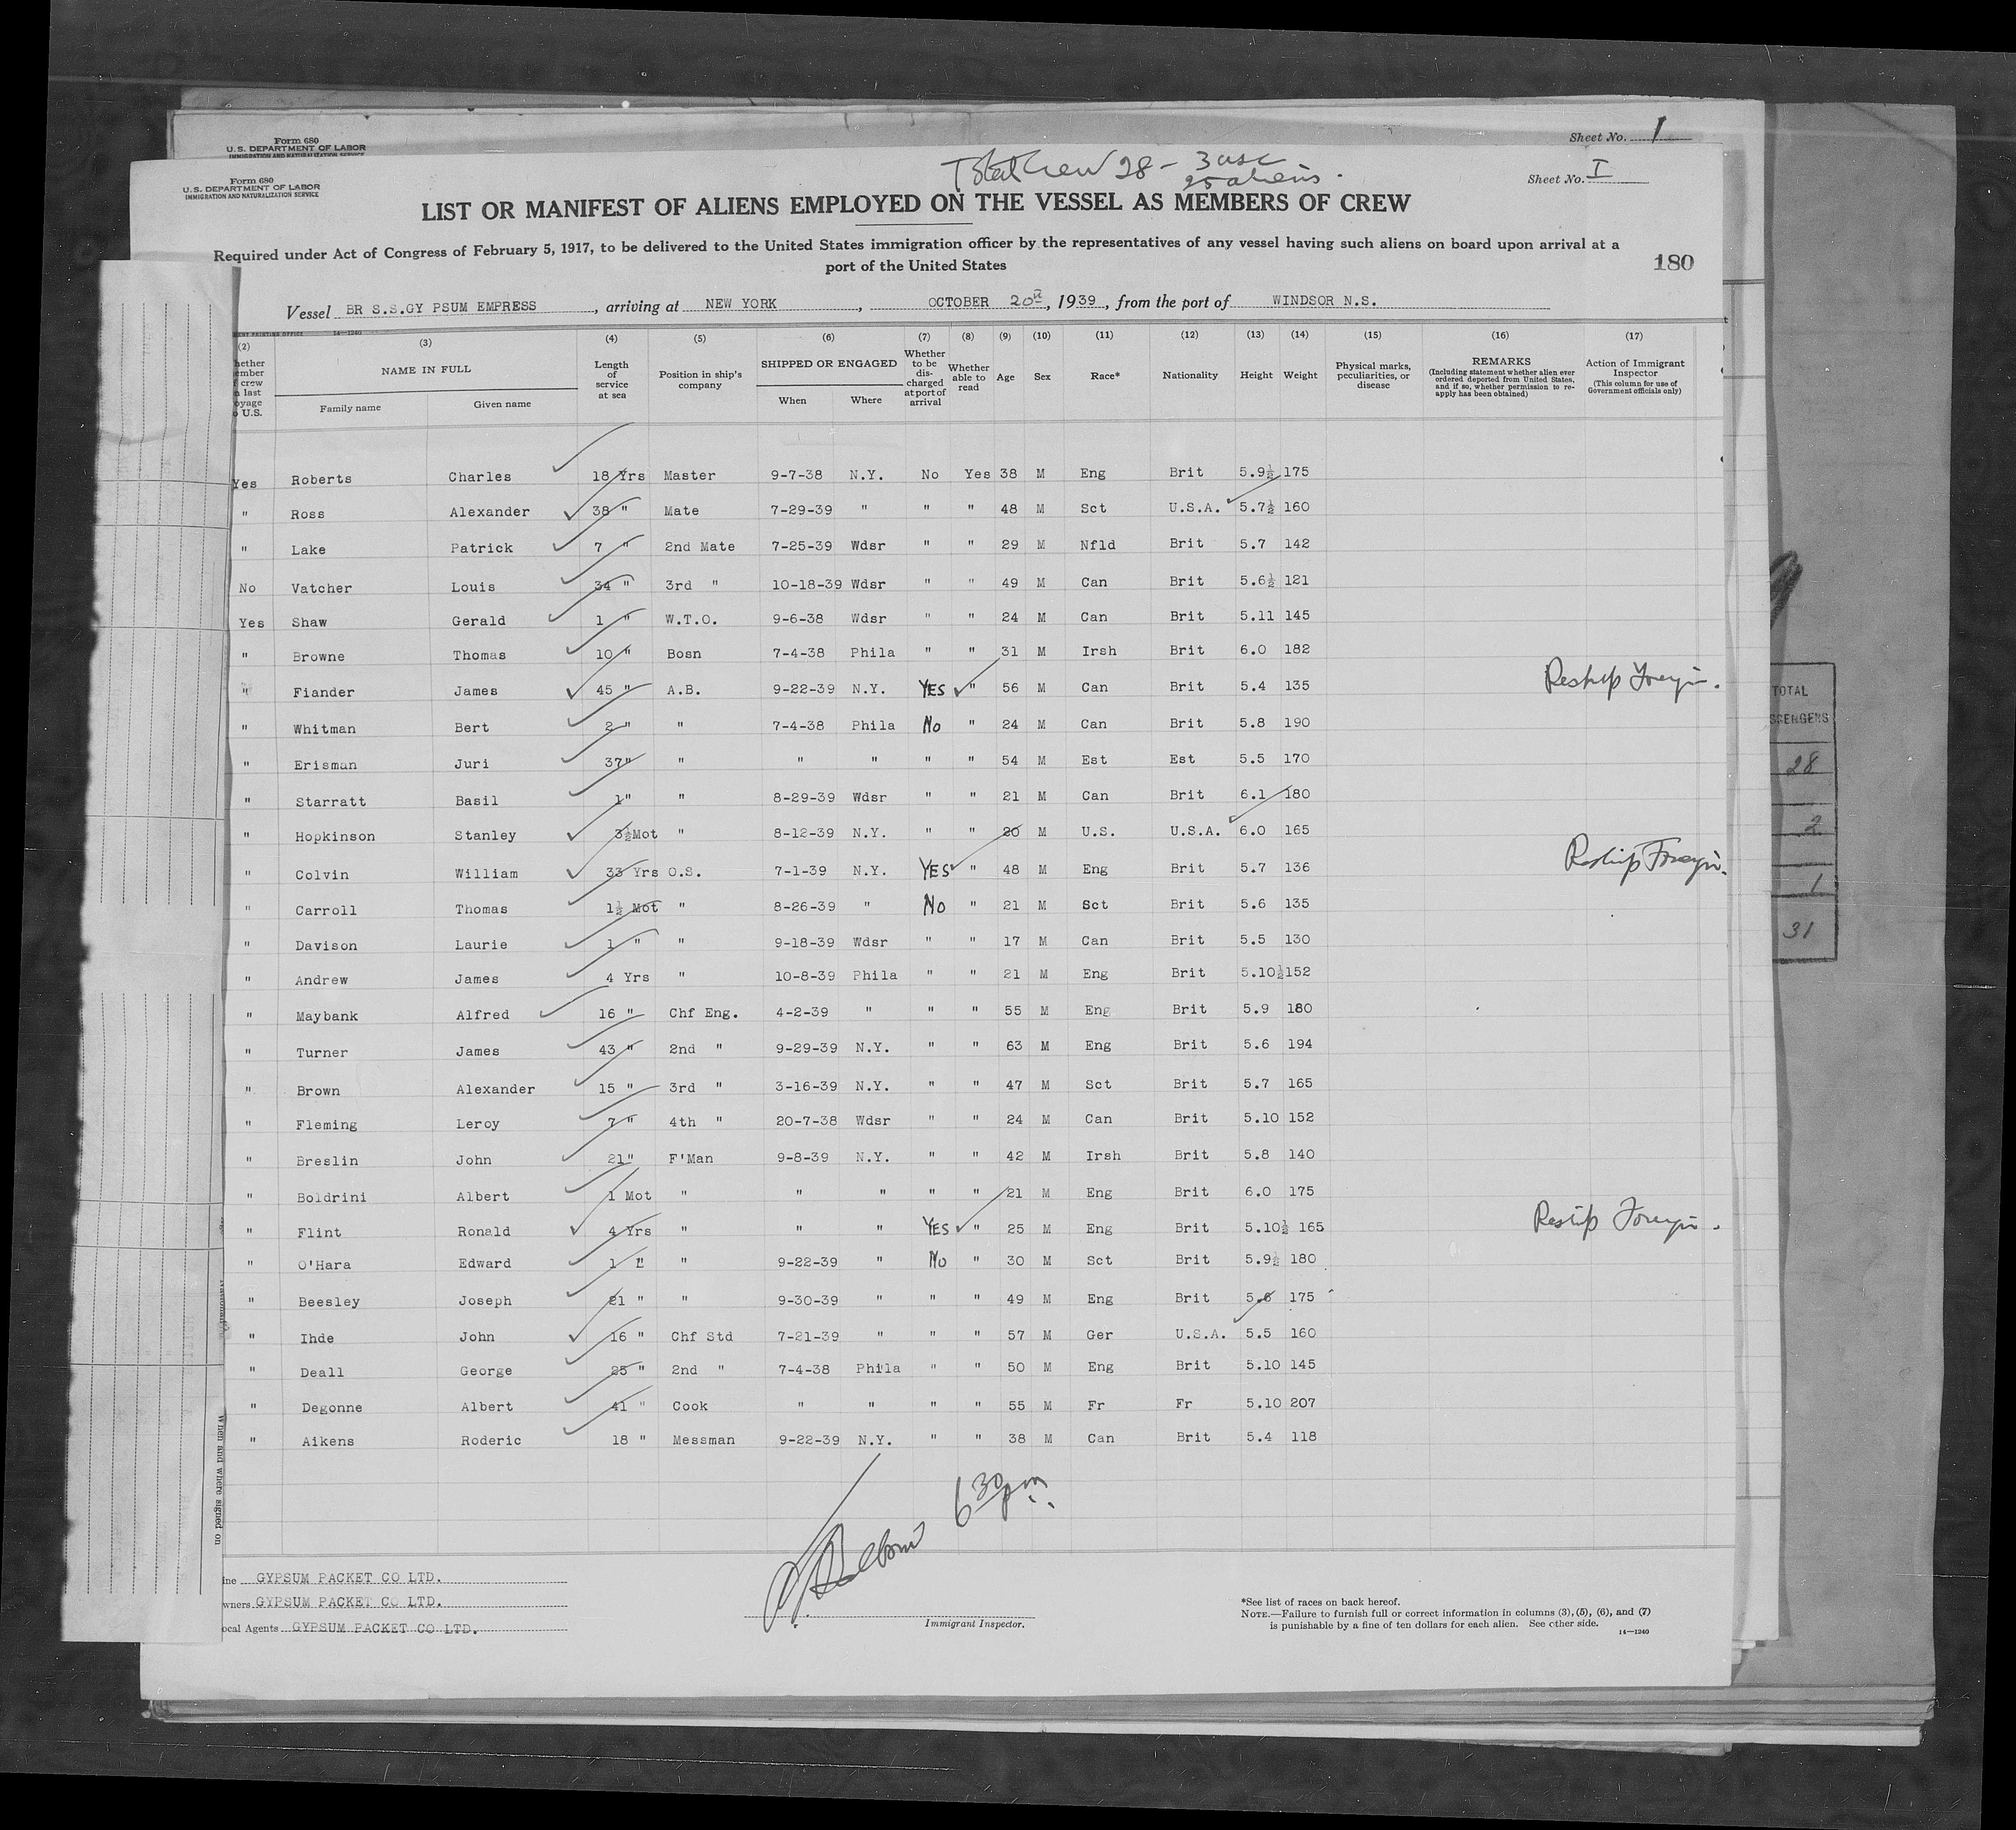 Form 680
U.S. DEPARTMENT OF LABOR
IMMIGRATION AND NATURALIZATION SERVICE
Sheet No. 1
Form 680
U.S. DEPARTMENT OF LABOR
IMMIGRATION AND NATURALIZATION SERVICE
Total Crew 28 - 3 usc
25 aliens.
Sheet No. I
LIST OR MANIFEST OF ALIENS EMPLOYED ON THE VESSEL AS MEMBERS OF CREW
Required under Act of Congress of February 5, 1917, to be delivered to the United States immigration officer by the representatives of any vessel having such aliens on board upon arrival at a
port of the United States
180
Vessel BR S.S.GY PSUM EMPRESS, arriving at NEW YORK, OCTOBER 20th, 1939, from the port of WINDSOR N.S.
(2) (3) (4) (5) (6) (7) (8) (9) (10) (11) (12) (13) (14) (15) (16) (17)
hether ember crew n last oyage U.S.
NAME IN FULL
Family name Given name
Length of service at sea
Position in ship's company
SHIPPED OR ENGAGED
When Where
Whether to be dis-charged at port of arrival
Whether able to read
Age Sex Race* Nationality Height Weight
Physical marks, peculiarities, or disease
REMARKS
(Including statement whether alien ever ordered deported from United States, and if so, whether permission to re-apply has been obtained)
Action of Immigrant Inspector
(This column for use of Government officials only)
Yes Roberts Charles 18 Yrs Master 9-7-38 N.Y. No Yes 38 M Eng Brit 5.9½ 175
" Ross Alexander 38 " Mate 7-29-39 " " " 48 M Sct U.S.A. 5.7½ 160
" Lake Patrick 7 " 2nd Mate 7-25-39 Wdsr " " 29 M Nfld Brit 5.7 142
No Vatcher Louis 34 " 3rd " 10-18-39 Wdsr " " 49 M Can Brit 5.6½ 121
Yes Shaw Gerald 1 " W.T.O. 9-6-38 Wdsr " " 24 M Can Brit 5.11 145
" Browne Thomas 10 " Bosn 7-4-38 Phila " " 31 M Irsh Brit 6.0 182
" Fiander James 45 " A.B. 9-22-39 N.Y. YES " 56 M Can Brit 5.4 135 Reship Foreign.
" Whitman Bert 2 " " 7-4-38 Phila No " 24 M Can Brit 5.8 190
" Erisman Juri 37" " " " " " 54 M Est Est 5.5 170
" Starratt Basil 1" " 8-29-39 Wdsr " " 21 M Can Brit 6.1 180
" Hopkinson Stanley 3½Mot " 8-12-39 N.Y. " " 20 M U.S. U.S.A. 6.0 165
" Colvin William 33 Yrs O.S. 7-1-39 N.Y. YES " 48 M Eng Brit 5.7 136 Reship Foreign.
" Carroll Thomas 1½ Mot " 8-26-39 " No " 21 M Sct Brit 5.6 135
" Davison Laurie 1 " " 9-18-39 Wdsr " " 17 M Can Brit 5.5 130
" Andrew James 4 Yrs " 10-8-39 Phila " " 21 M Eng Brit 5.10½ 152
" Maybank Alfred 16 " Chf Eng. 4-2-39 " " " 55 M Eng Brit 5.9 180
" Turner James 43 " 2nd " 9-29-39 N.Y. " " 63 M Eng Brit 5.6 194
" Brown Alexander 15 " 3rd " 3-16-39 N.Y. " " 47 M Sct Brit 5.7 165
" Fleming Leroy 7 " 4th " 20-7-38 Wdsr " " 24 M Can Brit 5.10 152
" Breslin John 21" F'Man 9-8-39 N.Y. " " 42 M Irsh Brit 5.8 140
" Boldrini Albert 1 Mot " " " " " 21 M Eng Brit 6.0 175
" Flint Ronald 4 Yrs " " " YES " 25 M Eng Brit 5.10½ 165 Reship Foreign.
" O'Hara Edward 1 " " 9-22-39 " No " 30 M Sct Brit 5.9½ 180
" Beesley Joseph 21 " " 9-30-39 " " " 49 M Eng Brit 5.6 175
" Ihde John 16 " Chf Std 7-21-39 " " " 57 M Ger U.S.A. 5.5 160
" Deall George 25 " 2nd " 7-4-38 Phila " " 50 M Eng Brit 5.10 145
" Degonne Albert 41 " Cook " " " " 55 M Fr Fr 5.10 207
" Aikens Roderic 18 " Messman 9-22-39 N.Y. " " 38 M Can Brit 5.4 118
6 30 pm
ine GYPSUM PACKET CO LTD.
wners GYPSUM PACKET CO LTD.
ocal Agents GYPSUM PACKET CO LTD.
Immigrant Inspector.
*See list of races on back hereof.
NOTE.—Failure to furnish full or correct information in columns (3), (5), (6), and (7)
is punishable by a fine of ten dollars for each alien. See other side.
14—1240
When and where signed on
TOTAL
SSENGERS
28
2
1
31